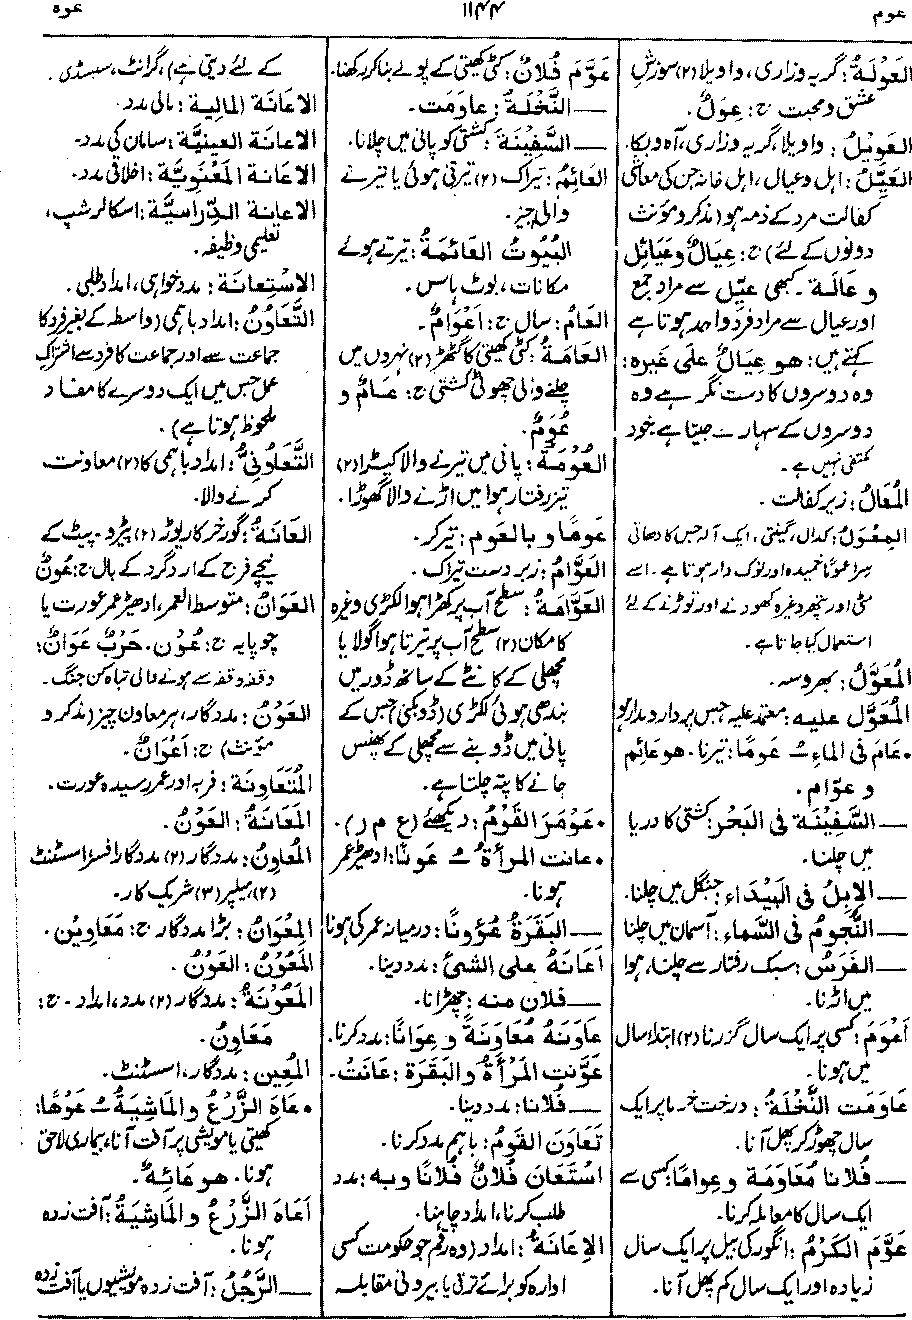 عوم
۱۱۴۴
عوہ
العَوْلَةُ: گریہ وزاری، واویلا (۲) سوزشِ
عشق ومحبت ج: عِوَلٌ.
العَوِيْلُ: واویلا، گریہ وزاری، آہ وبکا.
العَيِّلُ: اہل وعیال، اہل خانہ جن کی معاشی
کفالت مرد کے ذمہ ہو (مذکر ومؤنث
دونوں کے لئے) ج: عِيَالٌ وعَيَائِل
و عَالَة. کبھی عيّل سے مراد جمع
اور عیال سے مراد فردِ واحد ہوتا ہے
کہتے ہیں: هو عِيَالٌ على غَيره:
وہ دوسروں کا دست نگر ہے وہ
دوسروں کے سہارے جیتا ہے خود
مکتفی نہیں ہے.
المُعَالُ: زیر کفالت.
المِعْوَلُ: کدال، گینتی، ایک آلہ جس کا دھاتی
سرا عموماً خمیدہ اور نوک دار ہوتا ہے. اسے
مٹی اور پتھر وغیرہ کھودنے اور توڑنے کے لئے
استعمال کیا جاتا ہے.
المُعَوَّلُ: بھروسہ.
المُعَوَّل عليه: معتمد علیہ جس پر دارومدار ہو
• عَامَ فى الماءِ ـُ عَومًا: تیرنا. هو عَائم
و عوّام.
— السَّفِيْنَة فى البَحْر: کشتی کا دریا
میں چلنا.
— الإبِلُ فى البَيْدَاء: جنگل میں چلنا.
— النُّجُومُ فى السَّماء: آسمان میں چلنا
— الفَرَسُ: سبک رفتار سے چلنا، ہوا
میں اڑنا.
أَعْوَمَ: کسی پر ایک سال گزرنا (۲) ابتدا سال
میں ہونا.
عَاوَمَت النَّخْلَةُ: درخت خرما پر ایک
سال چھوڑ کر پھل آنا.
— فلانا مُعَاوَمَة وعِوامًا: کسی سے
ایک سال کا معاملہ کرنا.
عَوَّمَ الكَرْمُ: انگور کی بیل پر ایک سال
زیادہ اور ایک سال کم پھل آنا.
عَوَّمَ فُلَانٌ: کٹی کھیتی کے پولے بناکر رکھنا.
— النَّخْلَةُ: عاوَمَت.
— السَّفِيْنَةَ: کشتی کو پانی میں چلانا.
العَائِمُ: تیراک (۲) تیرتی ہوئی یا تیرنے
والی چیز.
البُيُوتُ العَائمَةُ: تیرتے ہوئے
مکانات، بوٹ ہاؤس.
العَامُ: سال ج: أَعْوَامٌ.
العَامَةُ: کٹی کھیتی کا گٹھڑ (۲) نہروں میں
چلنے والی چھوٹی کشتی ج: عَامٌ و
عُوَمٌ.
العُوْمَةُ: پانی میں تیرنے والا کیڑا (۲)
تیز رفتار ہوا میں اڑنے والا گھوڑا.
عَومًا و بالعَوم: تیر کر.
العَوَّامُ: زبردست تیراک.
العَوَّامَةُ: سطح آب پر کھڑا ہوا لکڑی وغیرہ
کا مکان (۲) سطح آب پر تیرتا ہوا گولا یا
مچھلی کے کانٹے کے ساتھ ڈور میں
بندھی ہوئی لکڑی (ڈوبکی) جس کے
پانی میں ڈوبنے سے مچھلی کے پھنس
جانے کا پتہ چلتا ہے.
• عَوْمَرَ القَوْمُ: دیکھئے (ع م ر).
• عانت المرأةُ ـُ عَونًا: ادھیڑ عمر
ہونا.
— البَقَرَةُ عُؤُونًا: درمیانہ عمر کی ہونا
أَعَانَهُ على الشئ: مدد دینا.
— فلان منه: چھڑانا.
عَاوَنَهُ مُعَاوَنَةً وعِوَانًا: مدد کرنا.
عَوَّنَتِ المَرْأَةُ والبَقَرَة: عَانَتْ.
— فُلَانًا: مدد دینا.
تَعَاوَنَ القَومُ: باہم مدد کرنا.
اسْتَعَانَ فُلَانٌ فُلَانًا وبه: مدد
طلب کرنا، امداد چاہنا.
الإعَانَةُ: امداد (وہ رقم جو حکومت کسی
ادارہ کو برائے ترقی یا بیرونی مقابلہ
کے لئے دیتی ہے)، گرانٹ، سبسڈی.
الإعَانَة المَالِية: مالی مدد.
الاعَانَة العينِيَّة: سامان کی مدد.
الاعَانَة المَعْنَوِيَّة: اخلاقی مدد.
الاعَانة الدِّرَاسِيَّة: اسکالرشپ،
تعلیمی وظیفہ.
الاسْتِعَانَة: مدد خواہی، امداد طلبی.
التَّعَاوُنُ: امداد باہمی (واسطہ کے بغیر فرد کا
جماعت سے اور جماعت کا فرد سے اشتراکِ
عمل جس میں ایک دوسرے کا مفاد
ملحوظ ہوتا ہے).
التَّعَاوُنِيُّ: امداد باہمی کا (۲) معاونت
کرنے والا.
العَانَةُ: گورخر کا ریوڑ (۲) پیڑو. پیٹ کے
نیچے فرج کے ارد گرد کے بال ج: عُونٌ
العَوَانُ: متوسط العمر، ادھیڑ عمر عورت یا
چوپایہ ج: عُوْن. حَرْبٌ عَوَانٌ:
وقفہ وقفہ سے ہونے والی تباہ کن جنگ.
العَوْنُ: مددگار، ہر معاون چیز (مذکر و
مؤنث) ج: أَعْوَانٌ.
المُتَعَاوِنَة: فربہ اور عمر رسیدہ عورت.
المَعَانَةُ: العَوْنُ.
المُعَاوِنُ: مددگار (۲) مددگار افسر اسسٹنٹ
(۲) ہیلپر (۳) شریک کار.
المِعْوَانُ: بڑا مددگار ج: مَعَاوِيْن.
المَعُوْنُ: العَوْنُ.
المَعُوْنَةُ: مددگار (۲) مدد، امداد. ج:
مَعَاوِنُ.
المُعِين: مددگار، اسسٹنٹ.
• عَاهَ الزَّرْعُ والمَاشِيَةُ ـُ عَوْهًا:
کھیتی یا مویشی پر آفت آنا، بیماری لاحق
ہونا. هو عَائِهٌ.
أَعَاهَ الزَّرْعُ والمَاشِيَةُ: آفت زدہ
ہونا.
— الرَّجُلُ: آفت زدہ مویشیوں یا آفت زدہ